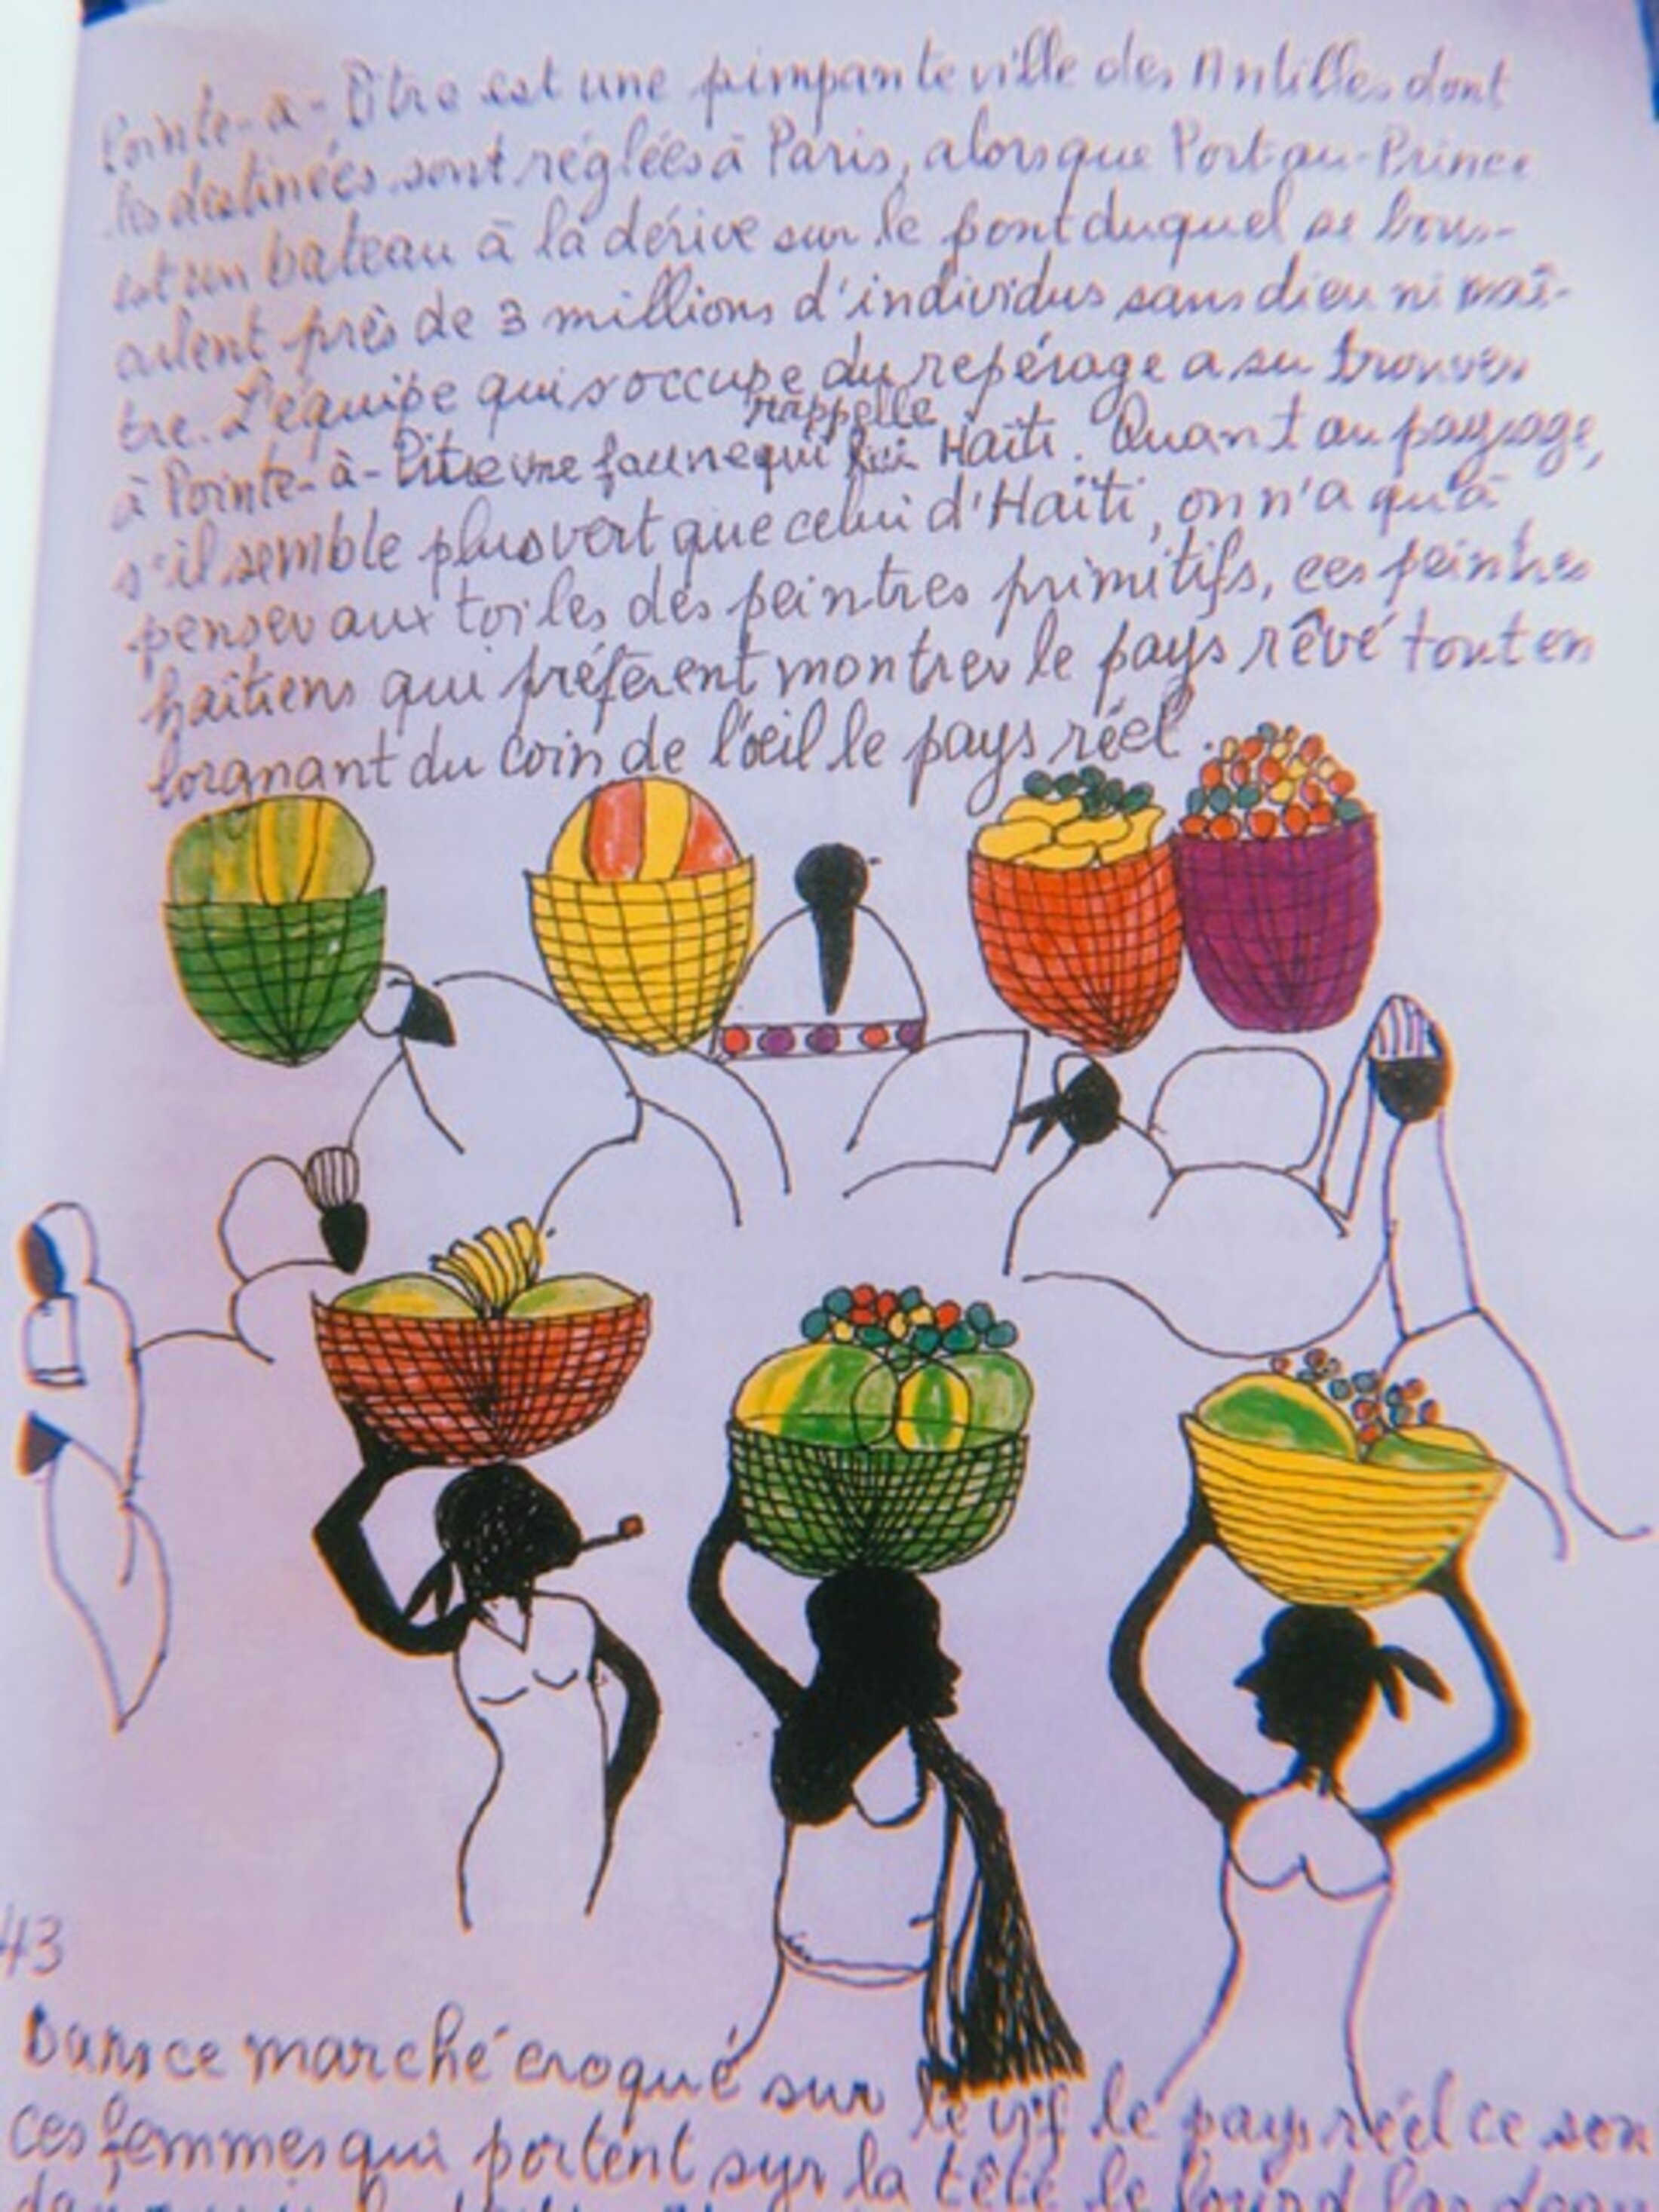 Pointe-à-Pitre est une pimpante ville des Antilles dont
les destinées sont réglées à Paris, alors que Port-au-Prince
est un bateau à la dérive sur le pont duquel se bous-
culent près de 3 millions d'individus sans dieu ni maî-
tre. L'équipe qui s'occupe du repérage a su trouver
rappelle
à Pointe-à-Pitre une faune qui lui Haïti. Quant au paysage,
s'il semble plus vert que celui d'Haïti, on n'a qu'à
penser aux toiles des peintres primitifs, ces peintres
haïtiens qui préfèrent montrer le pays rêvé tout en
lorgnant du coin de l'œil le pays réel.
43
Dans ce marché croqué sur le vif le pays réel ce son
ces femmes qui portent sur la tête le lourd